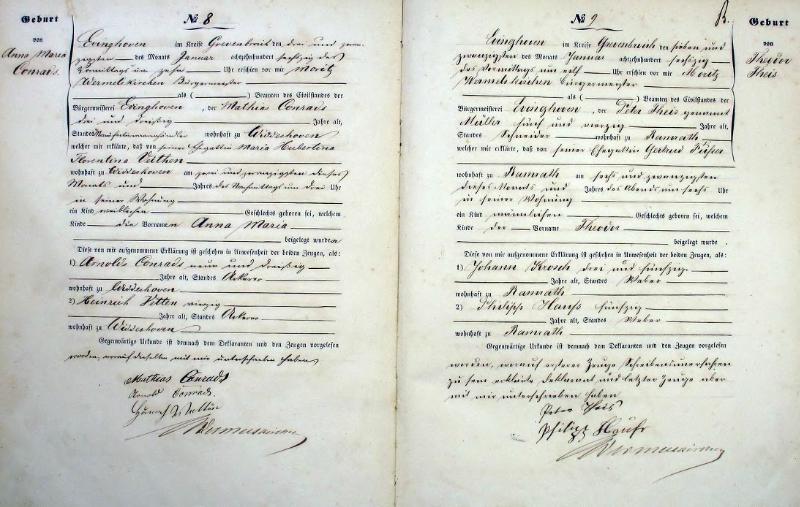 № 8
Geburt
von
Anna Maria
Conrads
Evinghoven im Kreise Grevenbroich den drei und zwan-
zigsten des Monats Januar achtzehnhundert sechszig des
Vormittags um zehn Uhr erschien vor mir Moritz
Wermelskirchen Bürgermeister
als ( ) Beamten des Civilstandes der
Bürgermeisterei Evinghoven, der Mathias Conrads
drei und dreißig Jahre alt,
Standes wohnhaft zu Widdeshoven
welcher mir erklärte, daß von seiner Ehegattin Maria Hubertina
Florentina
wohnhaft zu Widdeshoven am zwei und zwanzigsten dieses
Monats und Jahres des Nachmittags um drei Uhr
in seiner Wohnung
ein Kind weiblichen Geschlechts geboren sei, welchem
Kinde die Vornamen Anna Maria
beigelegt wurden
Diese von mir aufgenommene Erklärung ist geschehen in Anwesenheit der beiden Zeugen, als:
1) Arnold Conrads neun und dreißig
Jahre alt, Standes Ackerer
wohnhaft zu Widdeshoven
2) Heinrich vierzig
Jahre alt, Standes Ackerer
wohnhaft zu Widdeshoven
Gegenwärtige Urkunde ist demnach dem Deklaranten und den Zeugen vorgelesen
worden, worauf dieselben mit mir unterschrieben haben
Mathias Conrads
Arnold Conrads
Wermelskirchen
№ 9
B.
Geburt
von
Theodor
Theis
Evinghoven im Kreise Grevenbroich den sieben und
zwanzigsten des Monats Januar achtzehnhundert sechszig
des Vormittags um elf Uhr erschien vor mir Moritz
Wermelskirchen Bürgermeister
als ( ) Beamten des Civilstandes der
Bürgermeisterei Evinghoven, der Peter Theis genannt
Müller fünf und vierzig Jahre alt,
Standes Schneider wohnhaft zu Ramrath
welcher mir erklärte, daß von seiner Ehegattin Gertrud
wohnhaft zu Ramrath am sechs und zwanzigsten
dieses Monats und Jahres des Abends um sechs Uhr
in seiner Wohnung
ein Kind männlichen Geschlechts geboren sei, welchem
Kinde der Vorname Theodor
beigelegt wurde
Diese von mir aufgenommene Erklärung ist geschehen in Anwesenheit der beiden Zeugen, als:
1) Johann Krosch drei und fünfzig
Jahre alt, Standes Weber
wohnhaft zu Ramrath
2) Philipp Haufs fünfzig
Jahre alt, Standes Weber
wohnhaft zu Ramrath
Gegenwärtige Urkunde ist demnach dem Deklaranten und den Zeugen vorgelesen
worden, worauf ersterer Zeuge Schreibensunerfahren
zu sein erklärte Deklarant und letzter Zeuge aber
mit mir unterschrieben haben
Peter Theis
Philipp Haufs
Wermelskirchen